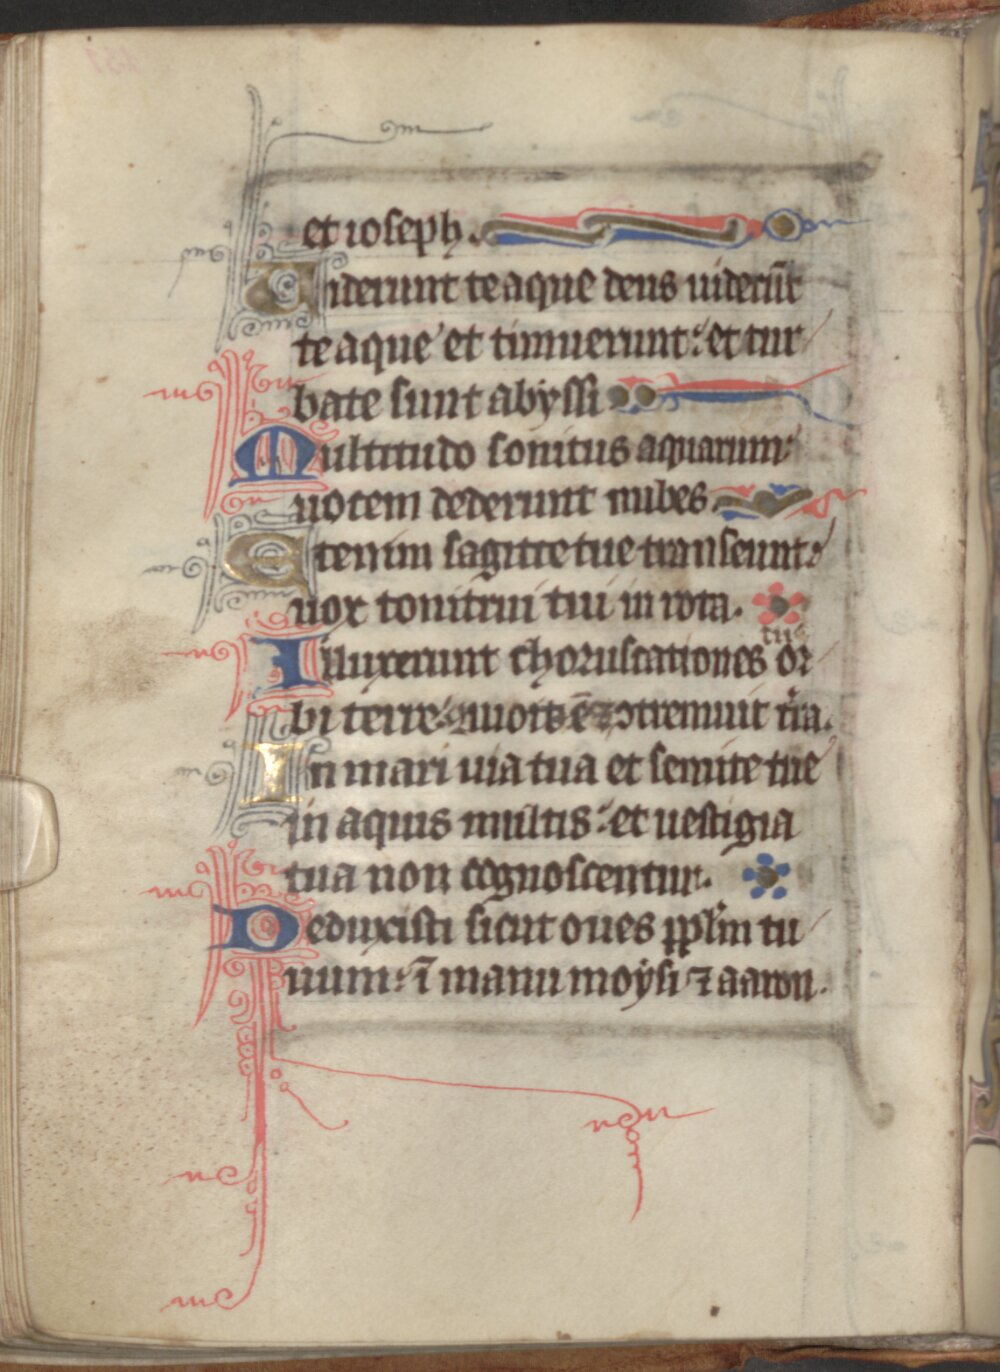 et ioseph.
Uiderunt te aque deus uiderūt
te aque et timuerunt: et tur
bate sunt abyssi
Multitudo sonitus aquarum:
uocem dederunt nubes.
Etenim sagitte tue transeunt:
uox tonitrui tui in rota.
tue
Illuxerunt choruscationes or
bi terre: ⁊ ꝯtremuit t̄ra.
In mari uia tua et semite tue
in aquis multis: et uestigia
tua non cognoscentur.
Deduxisti sicut oues pp̄lm tu
uum: ī manu moysi ⁊ aaron.